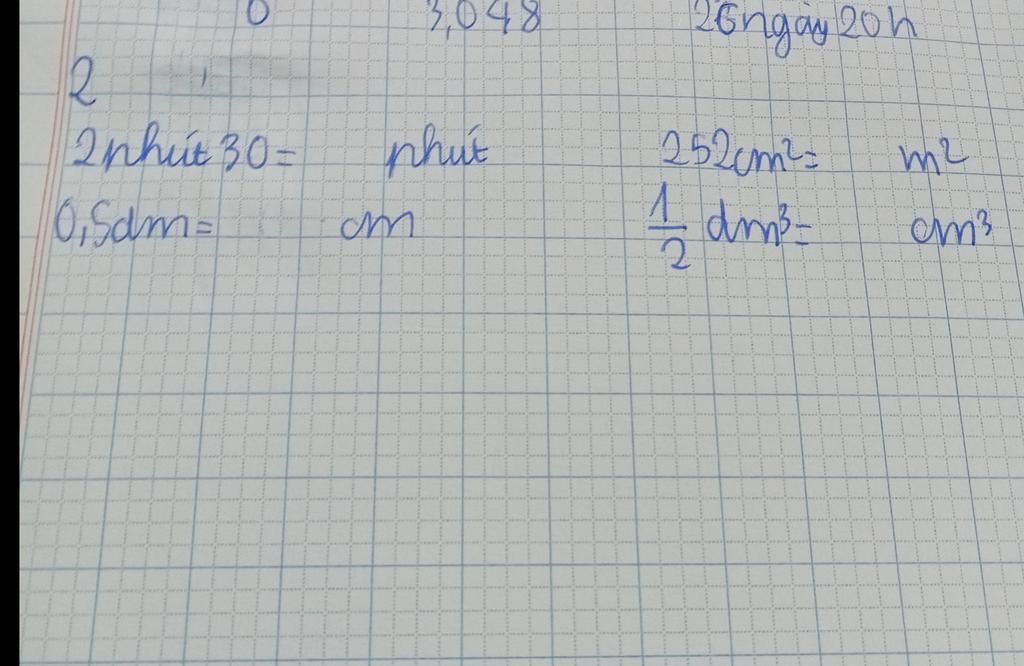 0 3,048 26ngày 20h
2
2 phút 30 = phút 252cm² = m²
0,5dm = cm 1/2 dm³ = cm³